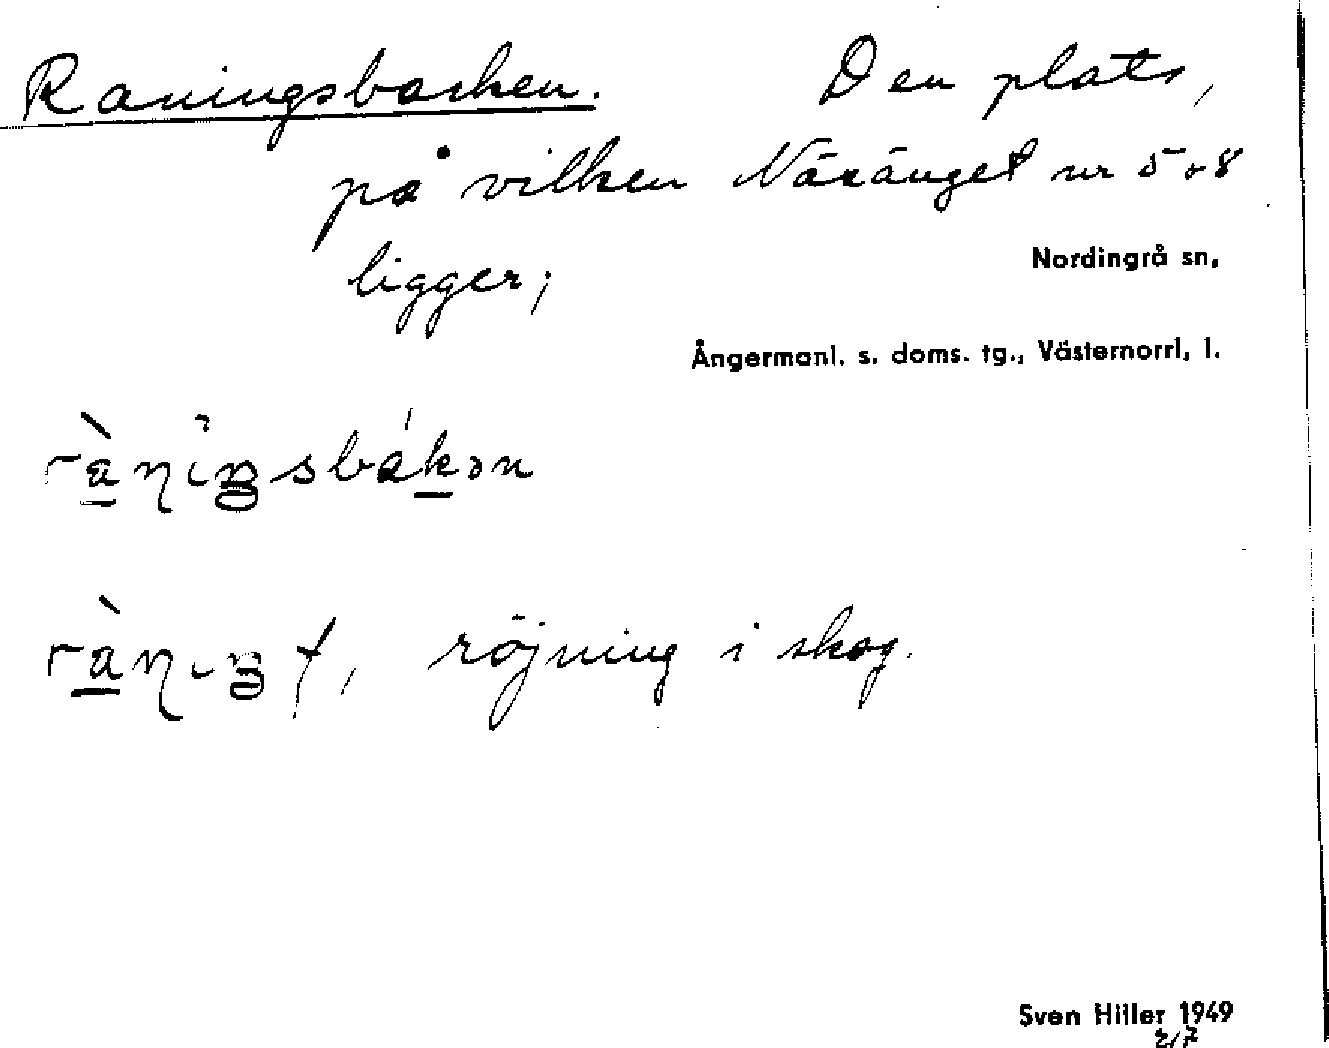 Raningsbacken. Den plats,
på vilken Näsänget nr 5 o 8
ligger;
Nordingrå sn,
Ångermanl. s. doms. tg., Västernorrl. l.
ràni̊ŋsbákən
ràniŋ f, röjning i skog.
Sven Hiller 1949
2/7